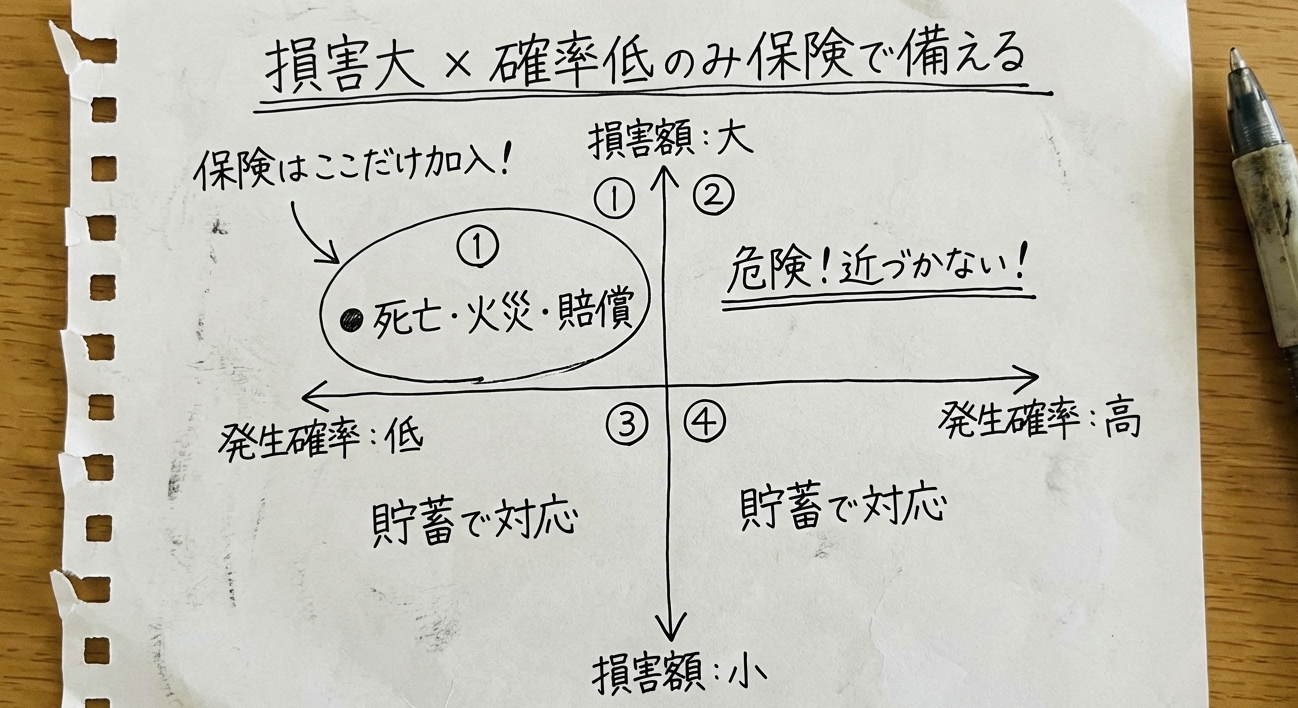 損害大 × 確率低のみ保険で備える
損害額：大
保険はここだけ加入！
① ②
①
危険！近づかない！
● 死亡・火災・賠償
発生確率：低
③ ④
発生確率：高
貯蓄で対応
貯蓄で対応
損害額：小